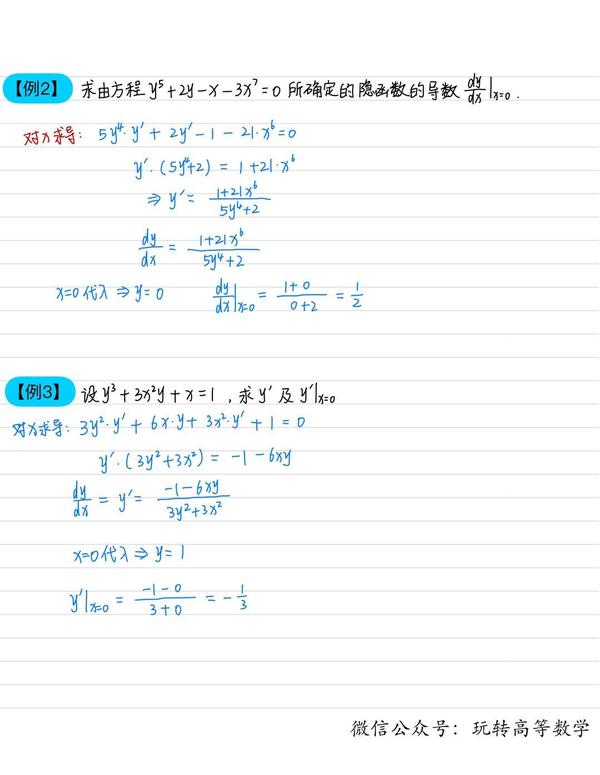 【例2】 求由方程 y⁵+2y-x-3x⁷=0 所确定的隐函数的导数 dy/dx|ₓ₌₀ .
对x求导: 5y⁴·y′+2y′-1-21·x⁶=0
y′·(5y⁴+2) = 1+21·x⁶
⇒ y′= (1+21x⁶)/(5y⁴+2)
dy/dx = (1+21x⁶)/(5y⁴+2)
x=0代入 ⇒ y=0 dy/dx|ₓ₌₀ = (1+0)/(0+2) = 1/2
【例3】 设 y³+3x²y+x=1 , 求 y′ 及 y′|ₓ₌₀
对x求导: 3y²·y′+6x·y+3x²·y′+1=0
y′·(3y²+3x²) = -1-6xy
dy/dx = y′= (-1-6xy)/(3y²+3x²)
x=0代入 ⇒ y=1
y′|ₓ₌₀ = (-1-0)/(3+0) = -1/3
微信公众号: 玩转高等数学